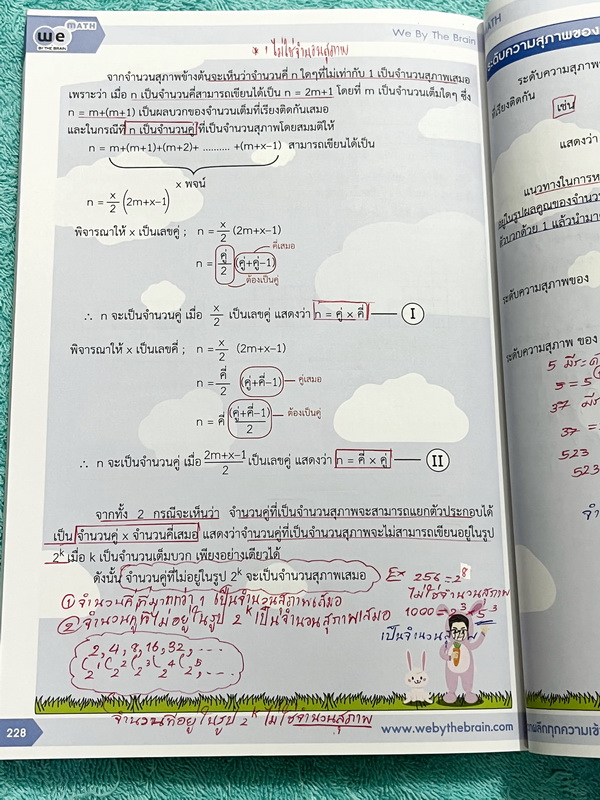 we MATH
BY THE BRAIN
We By The Brain
* 1 ไม่ใช่จำนวนสุภาพ
จากจำนวนสุภาพข้างต้นจะเห็นว่าจำนวนคี่ n ใดๆที่ไม่เท่ากับ 1 เป็นจำนวนสุภาพเสมอ
เพราะว่า เมื่อ n เป็นจำนวนคี่สามารถเขียนได้เป็น n = 2m+1 โดยที่ m เป็นจำนวนเต็มใดๆ ซึ่ง
n = m+(m+1) เป็นผลบวกของจำนวนเต็มที่เรียงติดกันเสมอ
และในกรณีที่ n เป็นจำนวนคู่ ที่เป็นจำนวนสุภาพโดยสมมติให้
n = m+(m+1)+(m+2)+ .......... +(m+x-1) สามารถเขียนได้เป็น
x พจน์
n = x/2 (2m+x-1)
พิจารณาให้ x เป็นเลขคู่ ; n = x/2 (2m+x-1)
คี่เสมอ
n = คู่/2 (คู่+คู่-1)
ต้องเป็นคู่
∴ n จะเป็นจำนวนคู่ เมื่อ x/2 เป็นเลขคู่ แสดงว่า n = คู่ x คี่ I
พิจารณาให้ x เป็นเลขคี่ ; n = x/2 (2m+x-1)
n = คี่/2 (คู่+คี่-1) คู่เสมอ
n = คี่ (คู่+คี่-1)/2 ต้องเป็นคู่
∴ n จะเป็นจำนวนคู่ เมื่อ 2m+x-1/2 เป็นเลขคู่ แสดงว่า n = คี่ x คู่ II
จากทั้ง 2 กรณีจะเห็นว่า จำนวนคู่ที่เป็นจำนวนสุภาพจะสามารถแยกตัวประกอบได้
เป็น จำนวนคู่ x จำนวนคี่เสมอ แสดงว่าจำนวนคู่ที่เป็นจำนวนสุภาพจะไม่สามารถเขียนอยู่ในรูป
2^k เมื่อ k เป็นจำนวนเต็มบวก เพียงอย่างเดียวได้
ดังนั้น จำนวนคู่ที่ไม่อยู่ในรูป 2^k จะเป็นจำนวนสุภาพเสมอ
Ex 256 = 2^8
ไม่ใช่จำนวนสุภาพ
① จำนวนคี่ที่มากกว่า 1 เป็นจำนวนสุภาพเสมอ
1000 = 2^3 × 5^3
② จำนวนคู่ที่ไม่อยู่ในรูป 2^k เป็นจำนวนสุภาพเสมอ
เป็นจำนวนสุภาพ
2, 4, 8, 16, 32, ...
2^1 2^2 2^3 2^4 2^5, ...
จำนวนที่อยู่ในรูป 2^k ไม่ใช่จำนวนสุภาพ
228
www.webythebrain.com
MATH
ระดับความสุภาพของ
ระดับความสุภาพ
ที่เรียงติดกัน
เช่น
แสดงว่า
แนวทางในการห
อยู่ในรูปผลคูณของจำนว
ตัวบวกด้วย 1 แล้วนำมา
ระดับความสุภาพของ
ระดับความสุภาพ ของ
3 = 5
37 =
523
523